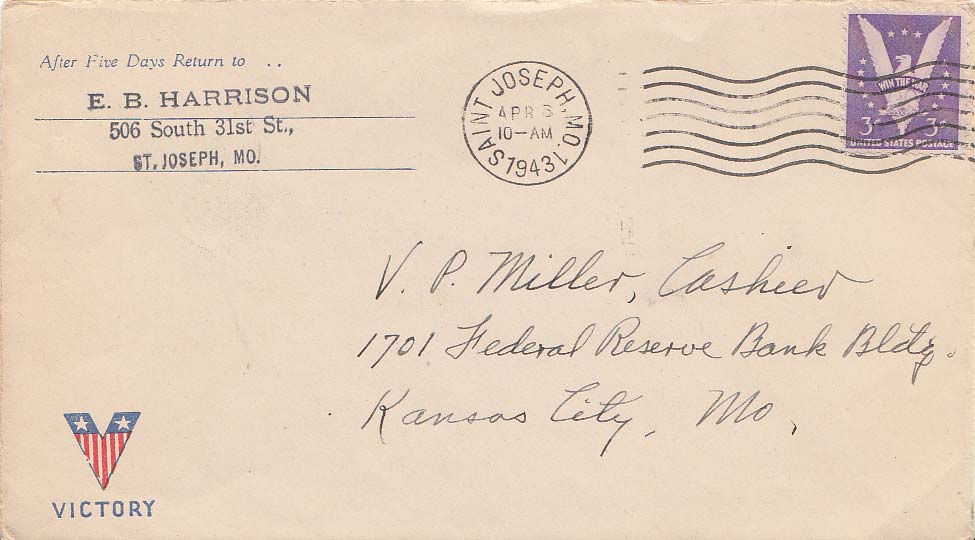 After Five Days Return to . .
E. B. HARRISON
506 South 31st St.,
ST. JOSEPH, MO.
SAINT JOSEPH, MO. 1
APR
10-AM
1943
WIN THE WAR
3¢ 3¢
UNITED STATES POSTAGE
V. P. Miller, Casheer
1701 Federal Reserve Bank Bldg.
Kansas City, Mo,
VICTORY